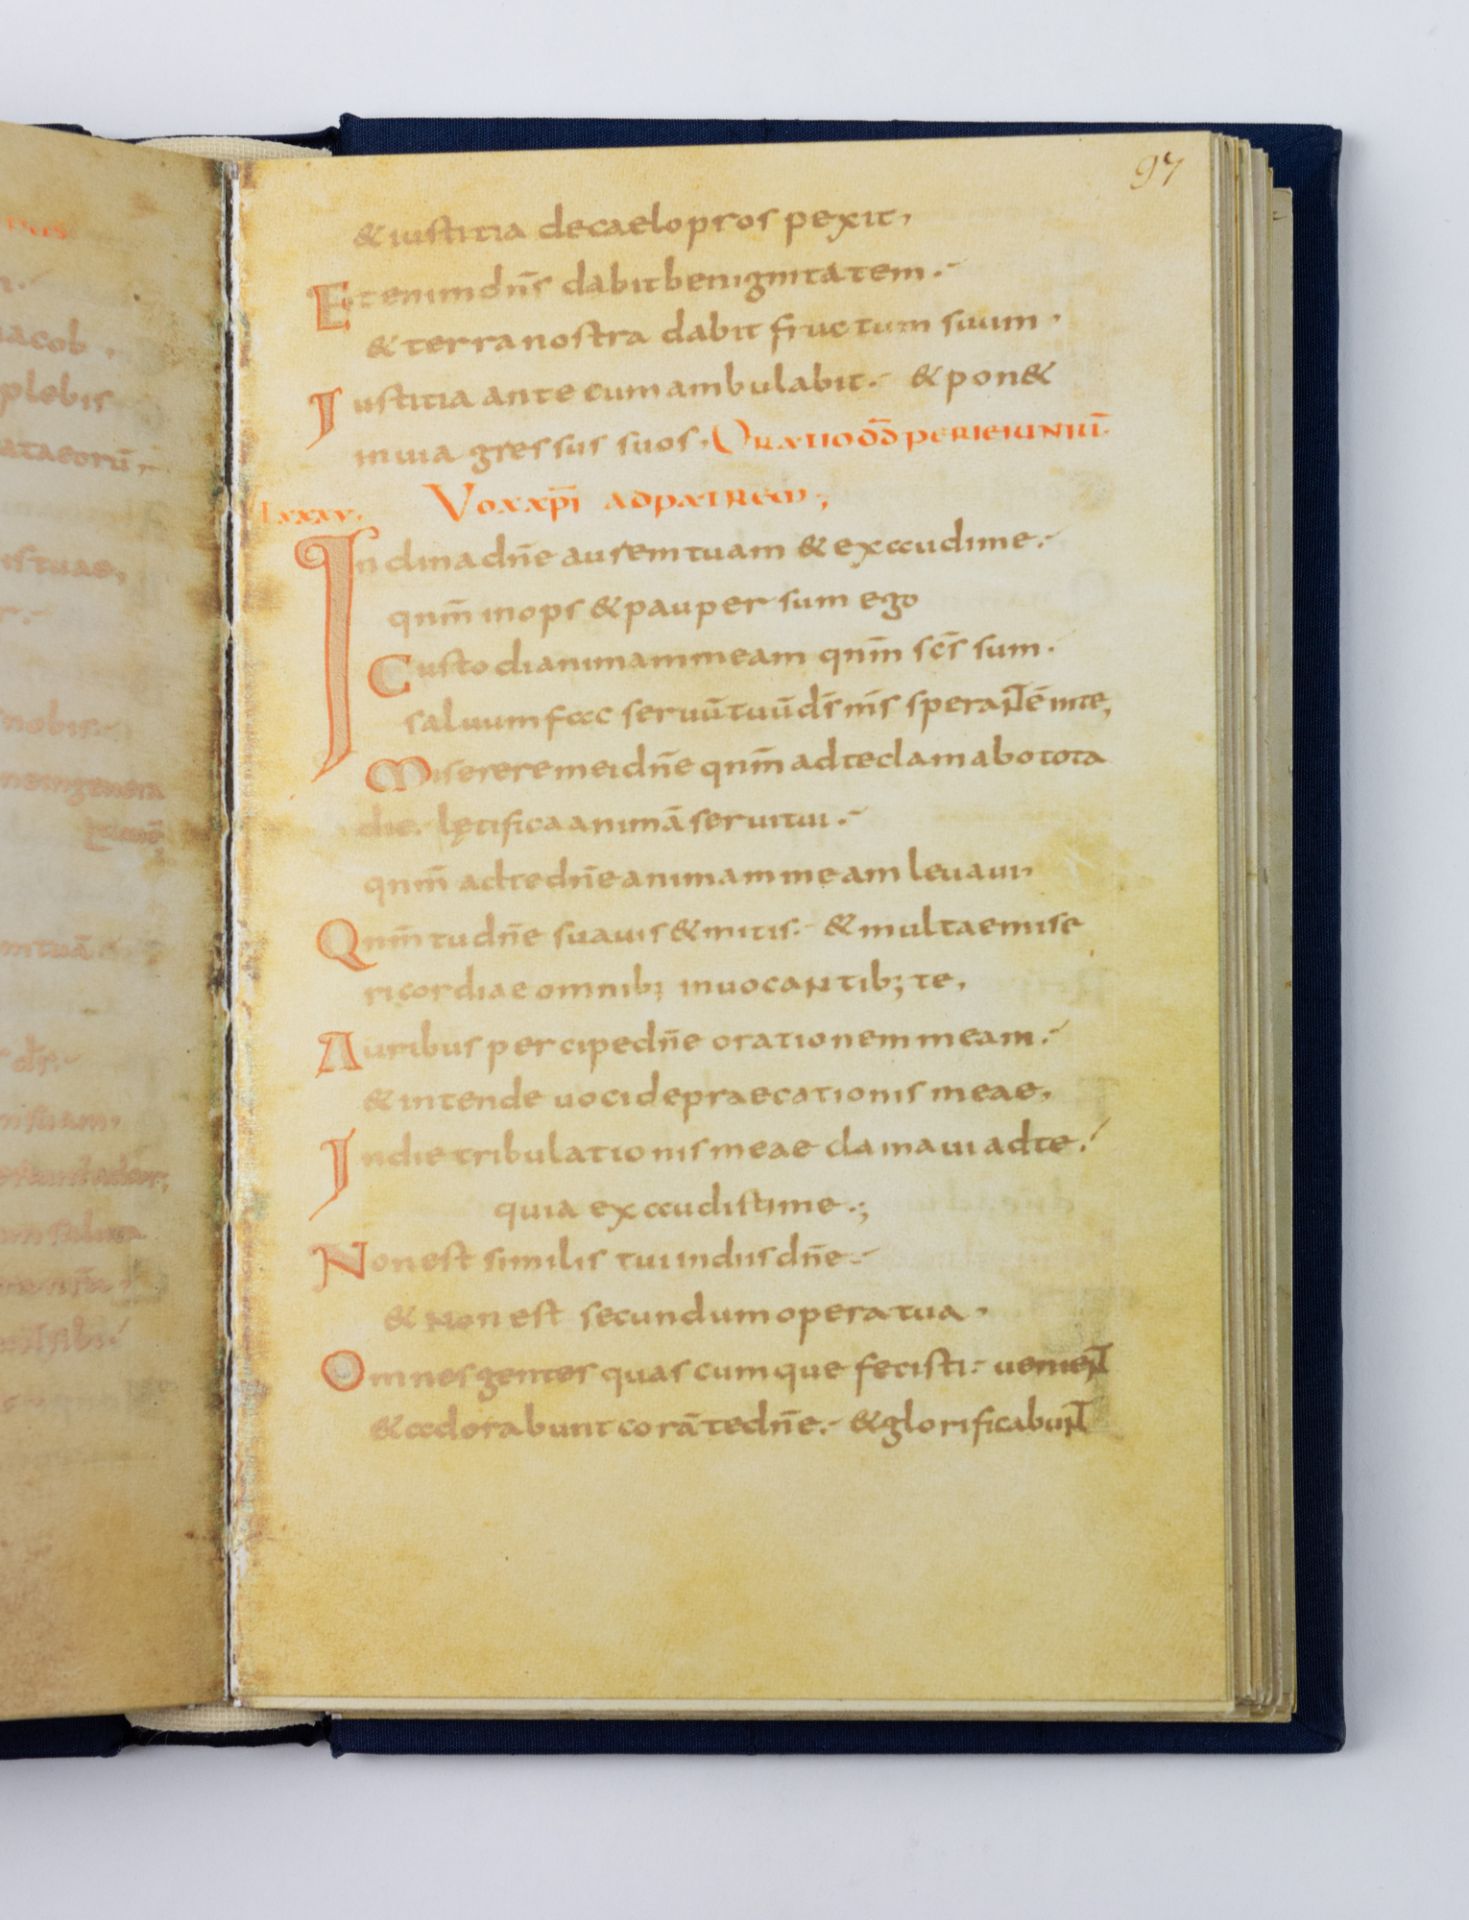 97
& iustitia decaelo prospexit,
Etenim dn̄s dabit benignitatem.
& terra nostra dabit fructum suum.
Iustitia ante eum ambulabit. & pon&
in uia gressus suos. Oratio dd̄ per ieiuniū
LXXXV. Vox xp̄i ad patrem;
Inclina dn̄e aurem tuam & exaudi me.
qnm̄ inops & pauper sum ego
Custodi animam meam qnm̄ sc̄s sum.
saluum fac seruū tuū ds̄ ms̄ sperantē in te,
Miserere mei dn̄e qnm̄ ad te clamabo tota
die. lętifica animā serui tui.
qnm̄ ad te dn̄e animam meam leuaui,
Qnm̄ tu dn̄e suauis & mitis. & multae mise
ricordiae omnib; inuocantib; te,
Auribus percipe dn̄e orationem meam.
& intende uoci depraecationis meae,
In die tribulationis meae clamaui ad te.
quia exaudisti me.;
Non est similis tui in diis dn̄e.
& non est secundum opera tua,
Omnes gentes quascumque fecisti. uenient
& adorabunt corā te dn̄e. & glorificabunt
iacob,
plebis
nobis.